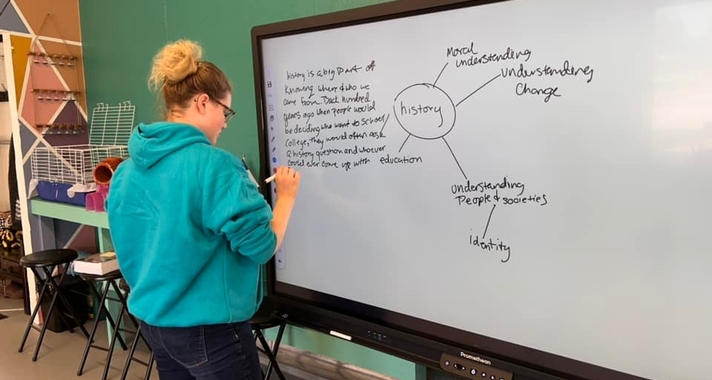 history is a big part of
knowing where & who we
came from. Back hundred
years ago when people would
be deciding who went to School/
College, they would often ask
a history question and whoever
could ever come up with
history
Moral
understanding
Understanding
Change
education
understanding
People & societies
identity
Promethean